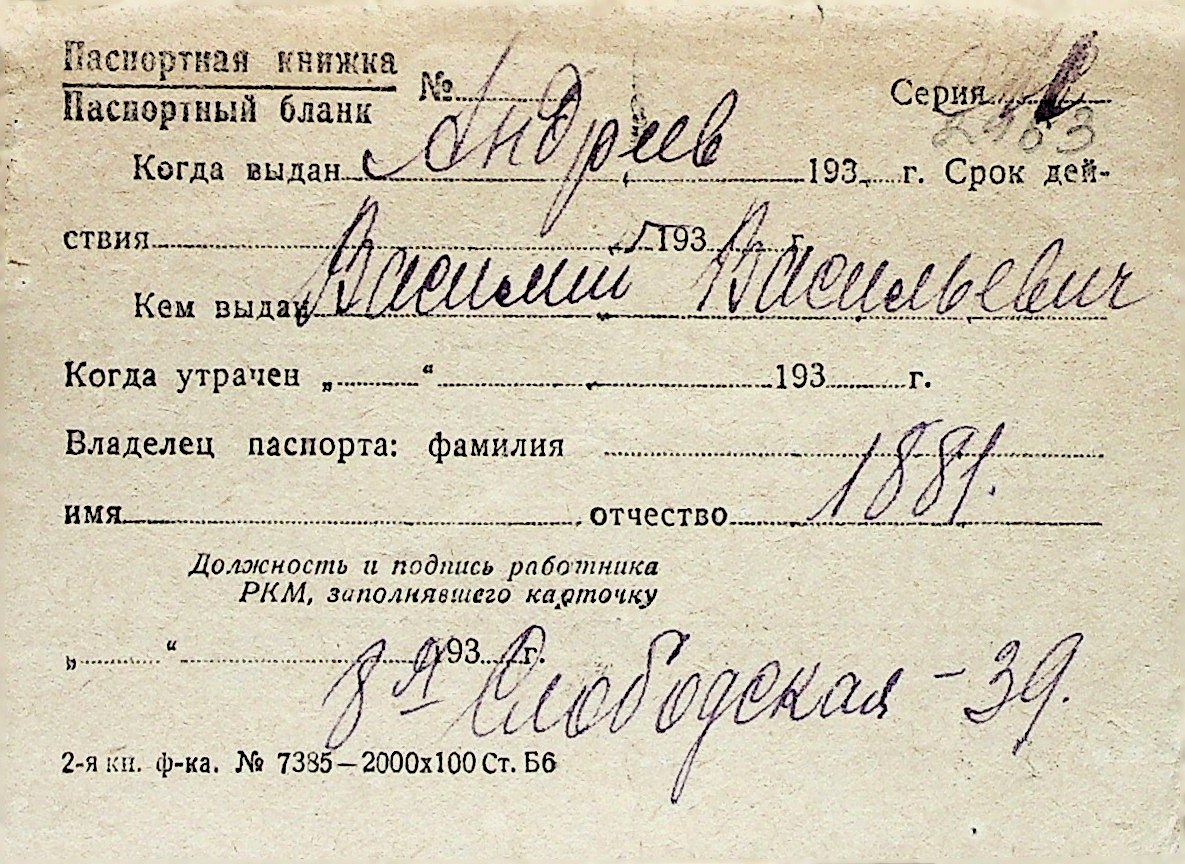 Паспортная книжка
Паспортный бланк
№ Серия
2983
Андреев
Когда выдан 193 г. Срок дей-
ствия 193 г.
Василий Васильевич
Кем выдан
Когда утрачен „ “ 193 г.
Владелец паспорта: фамилия
1881.
имя , отчество
Должность и подпись работника
РКМ, заполнявшего карточку
„ “ 193 г.
8я Слободская - 39.
2-я кн. ф-ка. № 7385—2000х100 Ст. Б6